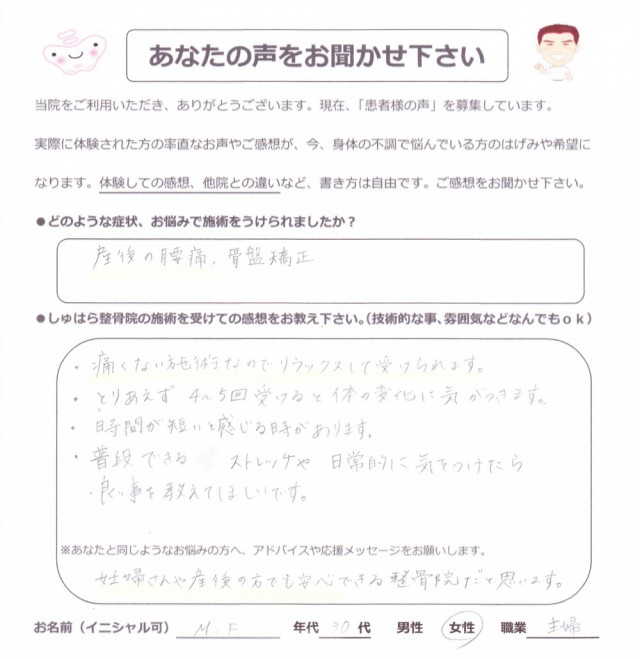 あなたの声をお聞かせ下さい
当院をご利用いただき、ありがとうございます。現在、「患者様の声」を募集しています。
実際に体験された方の率直なお声やご感想が、今、身体の不調で悩んでいる方のはげみや希望に
なります。体験しての感想、他院との違いなど、書き方は自由です。ご感想をお聞かせ下さい。
●どのような症状、お悩みで施術をうけられましたか？
産後の腰痛、骨盤矯正
●しゅはら整骨院の施術を受けての感想をお教え下さい。（技術的な事、雰囲気などなんでもｏｋ）
・痛くない施術なのでリラックスして受けられます。
・とりあえず 4〜5回受けると体の変化に気がつきます。
・時間が短いと感じる時があります。
・普段できる ストレッチや 日常的に気をつけたら
・良い事を教えてほしいです。
※あなたと同じようなお悩みの方へ、アドバイスや応援メッセージをお願いします。
妊婦さんや産後の方でも安心できる整骨院だと思います。
お名前（イニシャル可） M F 年代 30 代 男性 女性 職業 主婦